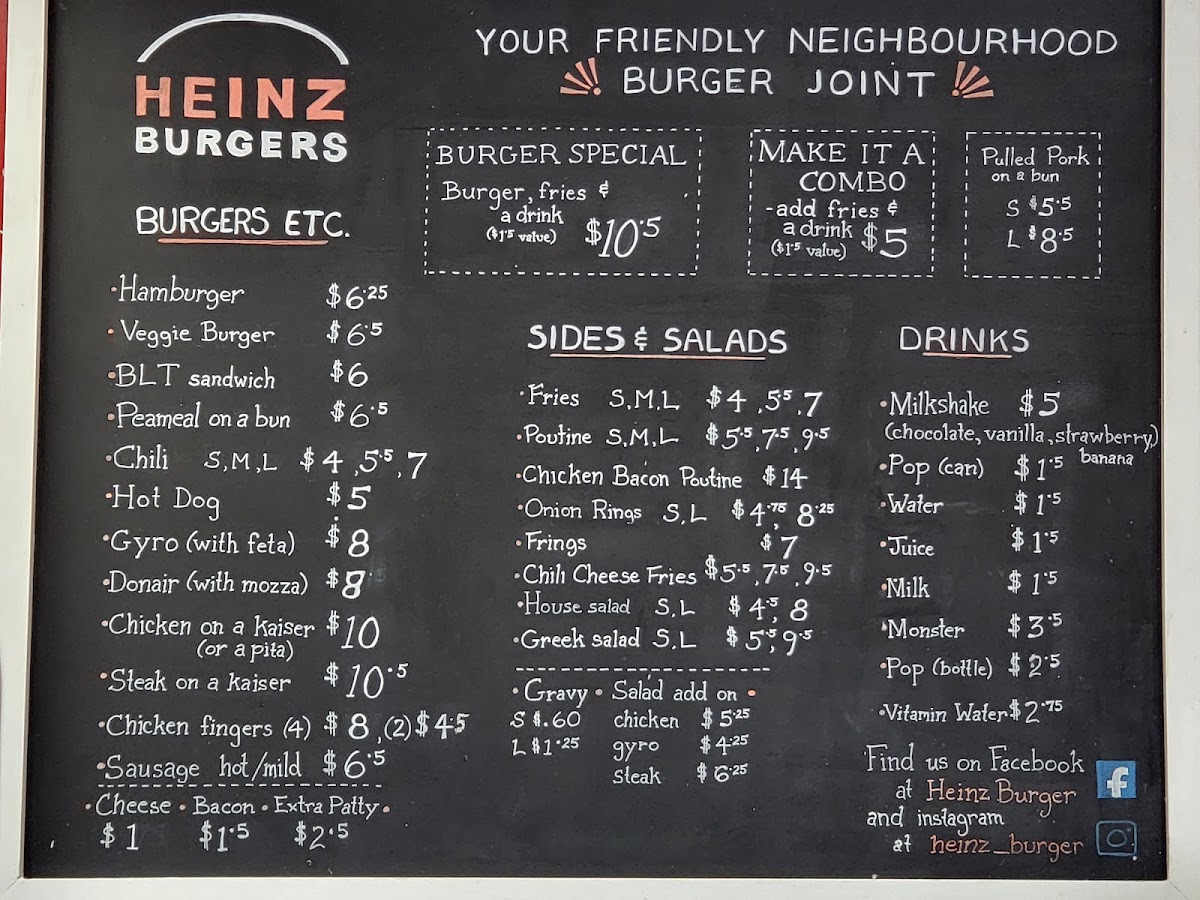 HEINZ
BURGERS
YOUR FRIENDLY NEIGHBOURHOOD
BURGER JOINT
BURGER SPECIAL
Burger, fries &
a drink
($1.5 value) $10.5
MAKE IT A
COMBO
-add fries &
a drink
($1.5 value) $5
Pulled Pork
on a bun
S $5.5
L $8.5
BURGERS ETC.
•Hamburger $6.25
•Veggie Burger $6.5
•BLT sandwich $6
•Peameal on a bun $6.5
•Chili S,M,L $4,5.5,7
•Hot Dog $5
•Gyro (with feta) $8
•Donair (with mozza) $8
•Chicken on a kaiser $10
(or a pita)
•Steak on a kaiser $10.5
•Chicken fingers (4) $8,(2)$4.5
•Sausage hot/mild $6.5
•Cheese•Bacon•Extra Patty•
$1 $1.5 $2.5
SIDES & SALADS
•Fries S,M,L $4,5.5,7
•Poutine S,M,L $5.5,7.5,9.5
•Chicken Bacon Poutine $14
•Onion Rings S,L $4.75, 8.25
•Frings $7
•Chili Cheese Fries $5.5,7.5,9.5
•House salad S,L $4.5, 8
•Greek salad S,L $5.5,9.5
•Gravy•Salad add on•
S $.60 chicken $5.25
L $1.25 gyro $4.25
steak $6.25
DRINKS
•Milkshake $5
(chocolate, vanilla, strawberry,)
banana
•Pop (can) $1.5
•Water $1.5
•Juice $1.5
•Milk $1.5
•Monster $3.5
•Pop (bottle) $2.5
•Vitamin Water $2.75
Find us on Facebook
at Heinz Burger
f
and instagram
at heinz_burger